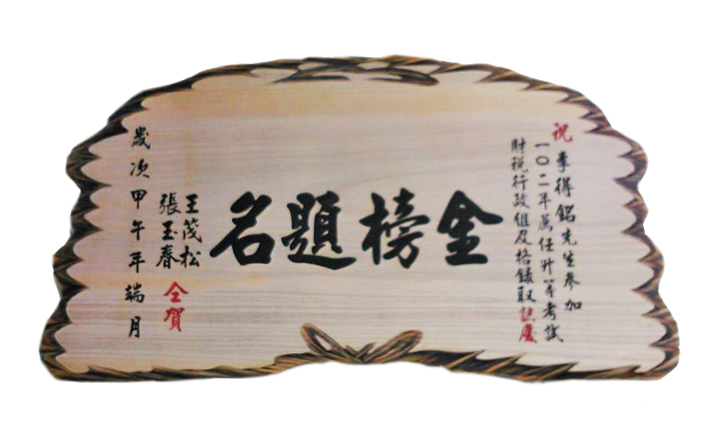 祝
李得銘先生參加
一〇二年薦任升等考試
財稅行政組及格錄取誌慶
金榜題名
王茂松
張玉春
仝賀
歲次甲午年端月